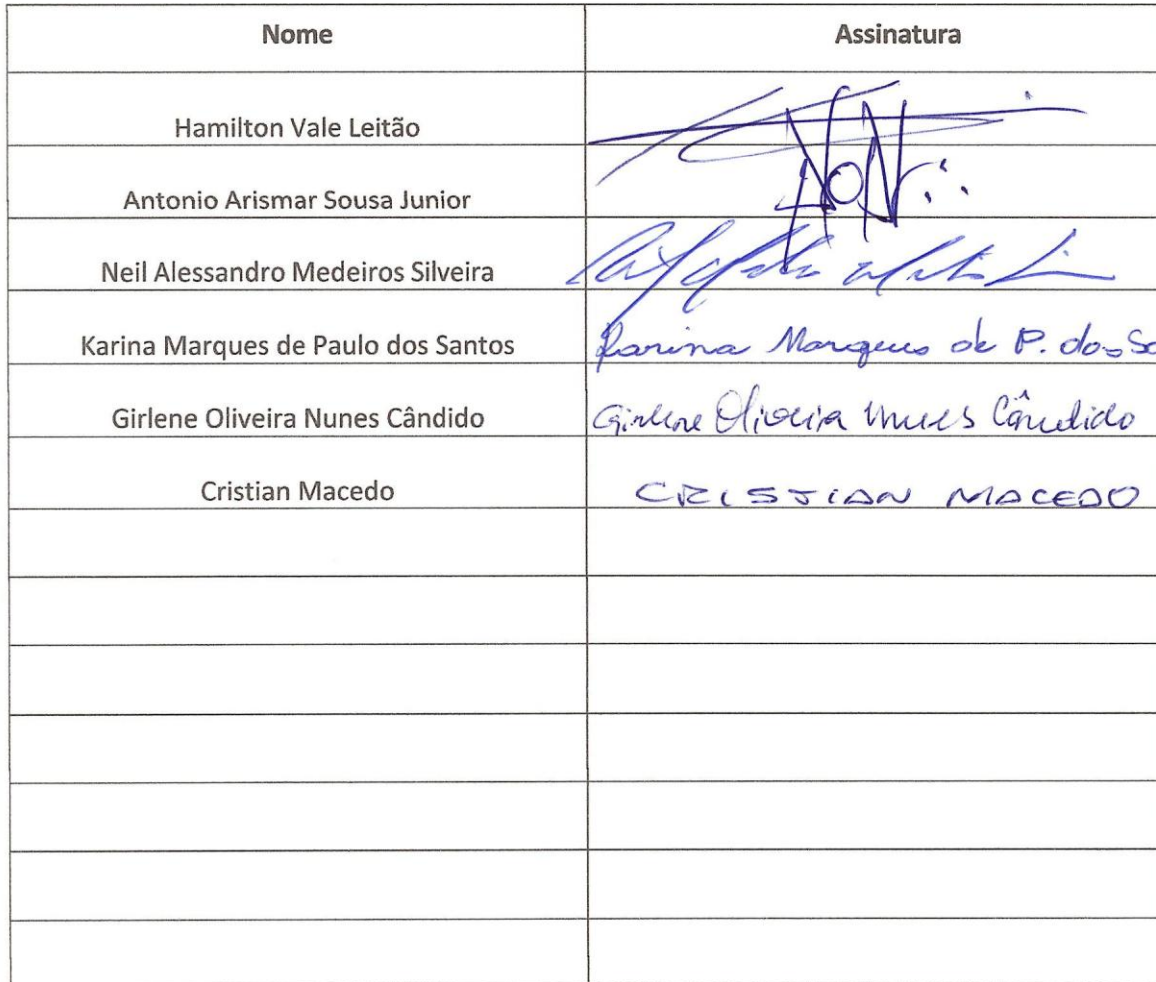 Nome Assinatura
Hamilton Vale Leitão
Antonio Arismar Sousa Junior
Neil Alessandro Medeiros Silveira
Karina Marques de Paulo dos Santos Karina Marques de P. dos Sa
Girlene Oliveira Nunes Cândido Girlene Oliveira Nunes Cândido
Cristian Macedo CRISTIAN MACEDO